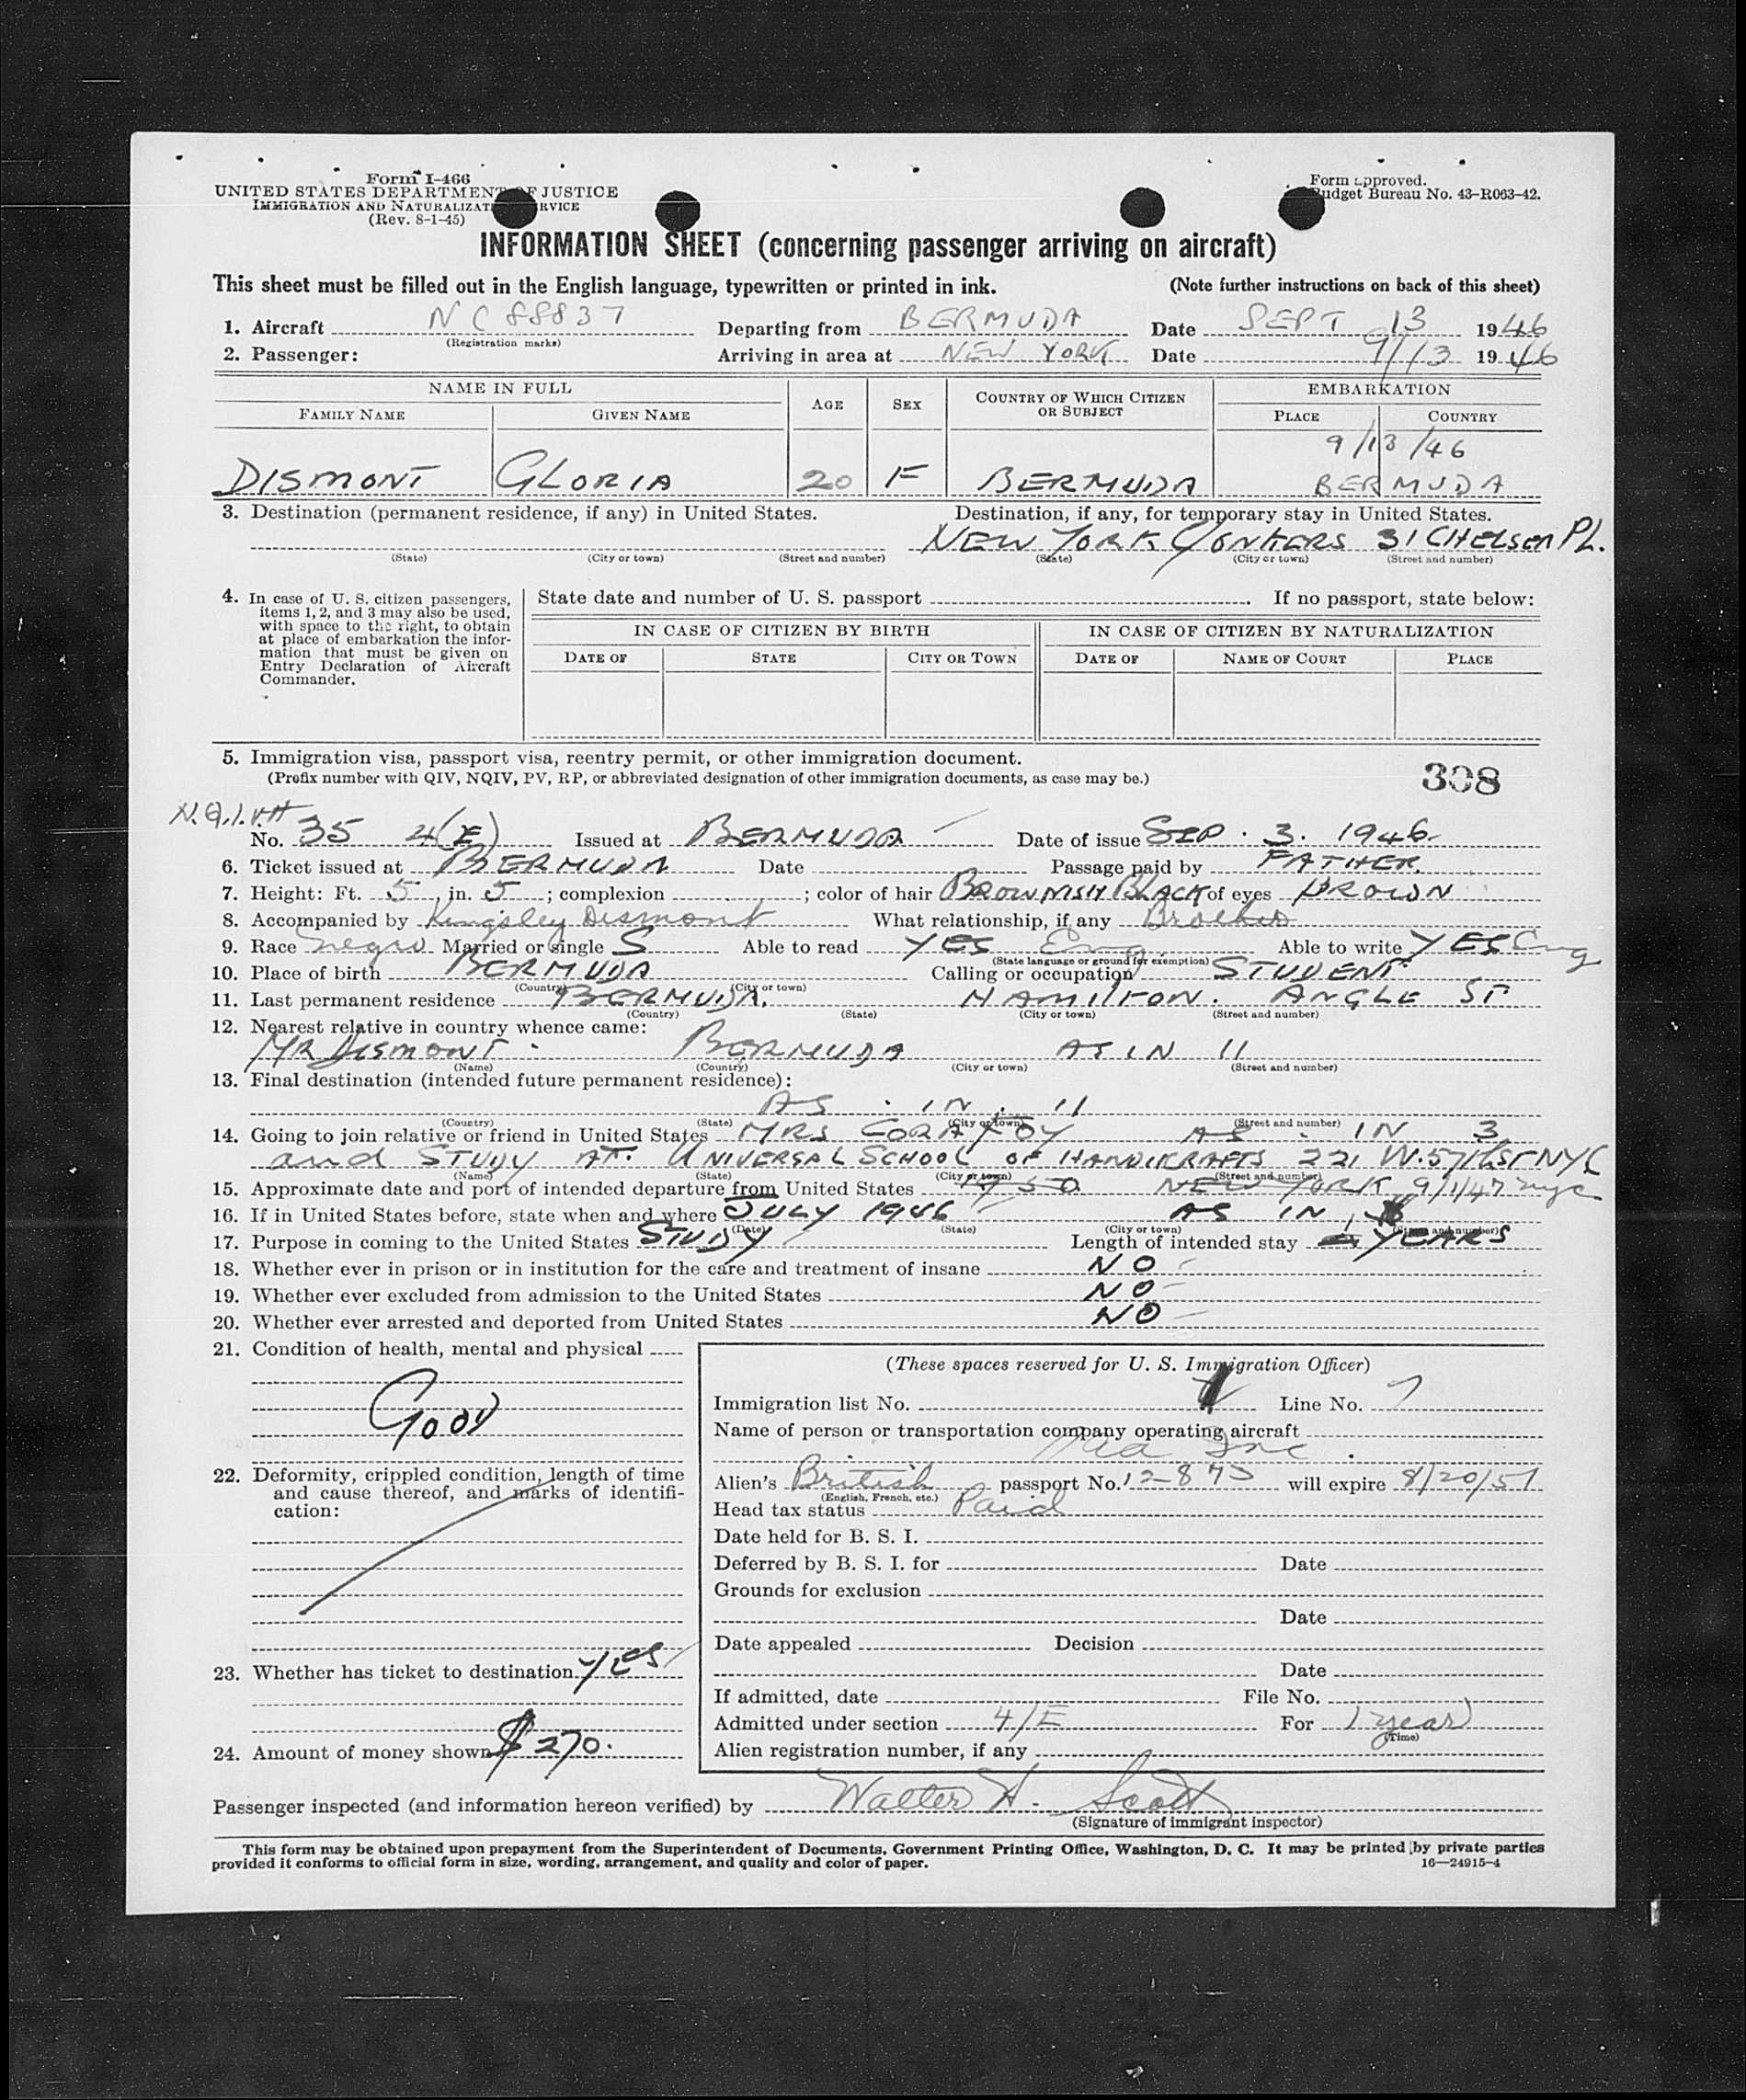 Form I-466
UNITED STATES DEPARTMENT OF JUSTICE
IMMIGRATION AND NATURALIZAT RVICE
(Rev. 8-1-45)
Form approved.
Budget Bureau No. 43-R063-42.
INFORMATION SHEET (concerning passenger arriving on aircraft)
This sheet must be filled out in the English language, typewritten or printed in ink. (Note further instructions on back of this sheet)
1. Aircraft NC88837 Departing from BERMUDA Date SEPT 13 1946
(Registration marks)
2. Passenger: Arriving in area at NEW YORK Date 9/13 1946
NAME IN FULL AGE SEX COUNTRY OF WHICH CITIZEN OR SUBJECT EMBARKATION
FAMILY NAME GIVEN NAME PLACE COUNTRY
9/13/46
DISMONT GLORIA 20 F BERMUDA BERMUDA
3. Destination (permanent residence, if any) in United States. Destination, if any, for temporary stay in United States.
NEW YORK YONKERS 31 CHELSEA PL.
(State) (City or town) (Street and number) (State) (City or town) (Street and number)
4. In case of U. S. citizen passengers, items 1, 2, and 3 may also be used, with space to the right, to obtain at place of embarkation the information that must be given on Entry Declaration of Aircraft Commander.
State date and number of U. S. passport . If no passport, state below:
IN CASE OF CITIZEN BY BIRTH IN CASE OF CITIZEN BY NATURALIZATION
DATE OF STATE CITY OR TOWN DATE OF NAME OF COURT PLACE
5. Immigration visa, passport visa, reentry permit, or other immigration document.
(Prefix number with QIV, NQIV, PV, RP, or abbreviated designation of other immigration documents, as case may be.)
308
N.Q.I.V.#
No. 35 4(E) Issued at BERMUDA Date of issue SEP. 3. 1946.
6. Ticket issued at BERMUDA Date Passage paid by FATHER.
7. Height: Ft. 5 in. 5 ; complexion ; color of hair BROWNISH BLACK of eyes BROWN
8. Accompanied by Kingsley Dismont What relationship, if any Brother
9. Race Negro Married or single S Able to read YES Eng Able to write YES Eng
(State language or ground for exemption)
10. Place of birth BERMUDA Calling or occupation STUDENT
(Country) (City or town)
11. Last permanent residence BERMUDA. HAMILTON. ANGLE ST
(Country) (State) (City or town) (Street and number)
12. Nearest relative in country whence came:
MR DISMONT. BERMUDA AS IN 11
(Name) (Country) (City or town) (Street and number)
13. Final destination (intended future permanent residence):
AS . IN . 11
(Country) (State) (City or town) (Street and number)
14. Going to join relative or friend in United States MRS CORA FOY AS . IN 3
and STUDY AT. UNIVERSAL SCHOOL OF HANDICRAFTS 221 W. 57th ST NYC
(Name) (State) (City or town) (Street and number)
15. Approximate date and port of intended departure from United States 1950 NEW YORK 9/1/47 nyc
16. If in United States before, state when and where JULY 1946 AS IN
(Date) (State) (City or town) (Street and number)
17. Purpose in coming to the United States STUDY Length of intended stay YEARS
18. Whether ever in prison or in institution for the care and treatment of insane NO
19. Whether ever excluded from admission to the United States NO
20. Whether ever arrested and deported from United States NO
21. Condition of health, mental and physical
GOOD
22. Deformity, crippled condition, length of time and cause thereof, and marks of identification:
23. Whether has ticket to destination YES
24. Amount of money shown $270.
(These spaces reserved for U. S. Immigration Officer)
Immigration list No. Line No. 7
Name of person or transportation company operating aircraft
Inc.
Alien's British passport No. 12875 will expire 8/20/51
(English, French, etc.)
Head tax status Paid
Date held for B. S. I.
Deferred by B. S. I. for Date
Grounds for exclusion
Date
Date appealed Decision
Date
If admitted, date File No.
Admitted under section 4/E For 1 year
(Time)
Alien registration number, if any
Passenger inspected (and information hereon verified) by Walter H. Scott
(Signature of immigrant inspector)
This form may be obtained upon prepayment from the Superintendent of Documents, Government Printing Office, Washington, D. C. It may be printed by private parties
provided it conforms to official form in size, wording, arrangement, and quality and color of paper. 16—24915-4